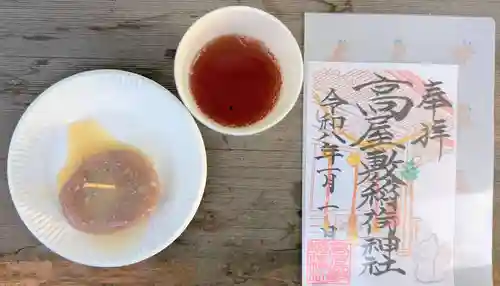 奉拝
高屋敷稲荷神社
令和八年一月一日